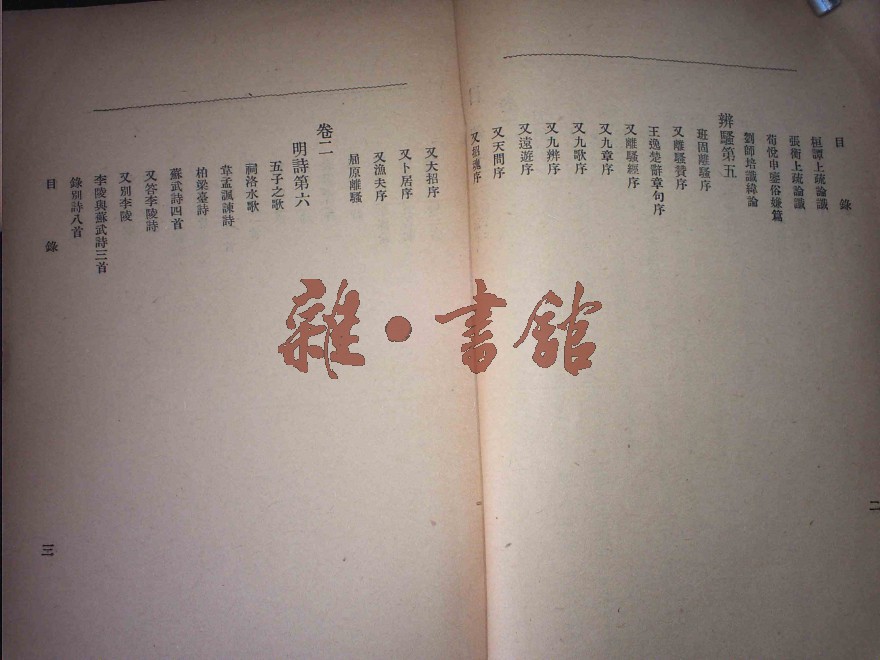 目錄
桓譚上疏論讖
張衡上疏論讖
荀悅申鑒俗嫌篇
劉師培讖緯論
辨騷第五
班固離騷序
又離騷贊序
王逸楚辭章句序
又離騷經序
又九章序
又九歌序
又九辨序
又遠遊序
又天問序
又招魂序
二
又大招序
又卜居序
又漁夫序
屈原離騷
卷二
明詩第六
五子之歌
祠洛水歌
韋孟諷諫詩
柏梁臺詩
蘇武詩四首
又答李陵詩
又別李陵
李陵與蘇武詩三首
錄別詩八首
目錄
三
雜·書館